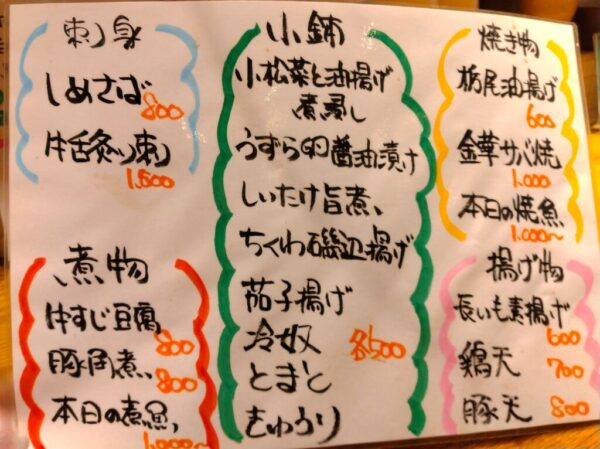 刺身
しめさば
800
牛舌炙り刺
1,500
煮物
牛すじ豆腐
800
豚角煮
800
本日の煮魚
1,000〜
小鉢
小松菜と油揚げ
煮浸し
うずら卵醤油漬け
しいたけ旨煮
ちくわ磯辺揚げ
茄子揚げ
冷奴 各500
とまと
きゅうり
焼き物
栃尾油揚げ
600
金華サバ焼
1,000
本日の焼魚
1,000〜
揚げ物
長いも素揚げ
600
鶏天 700
豚天 800